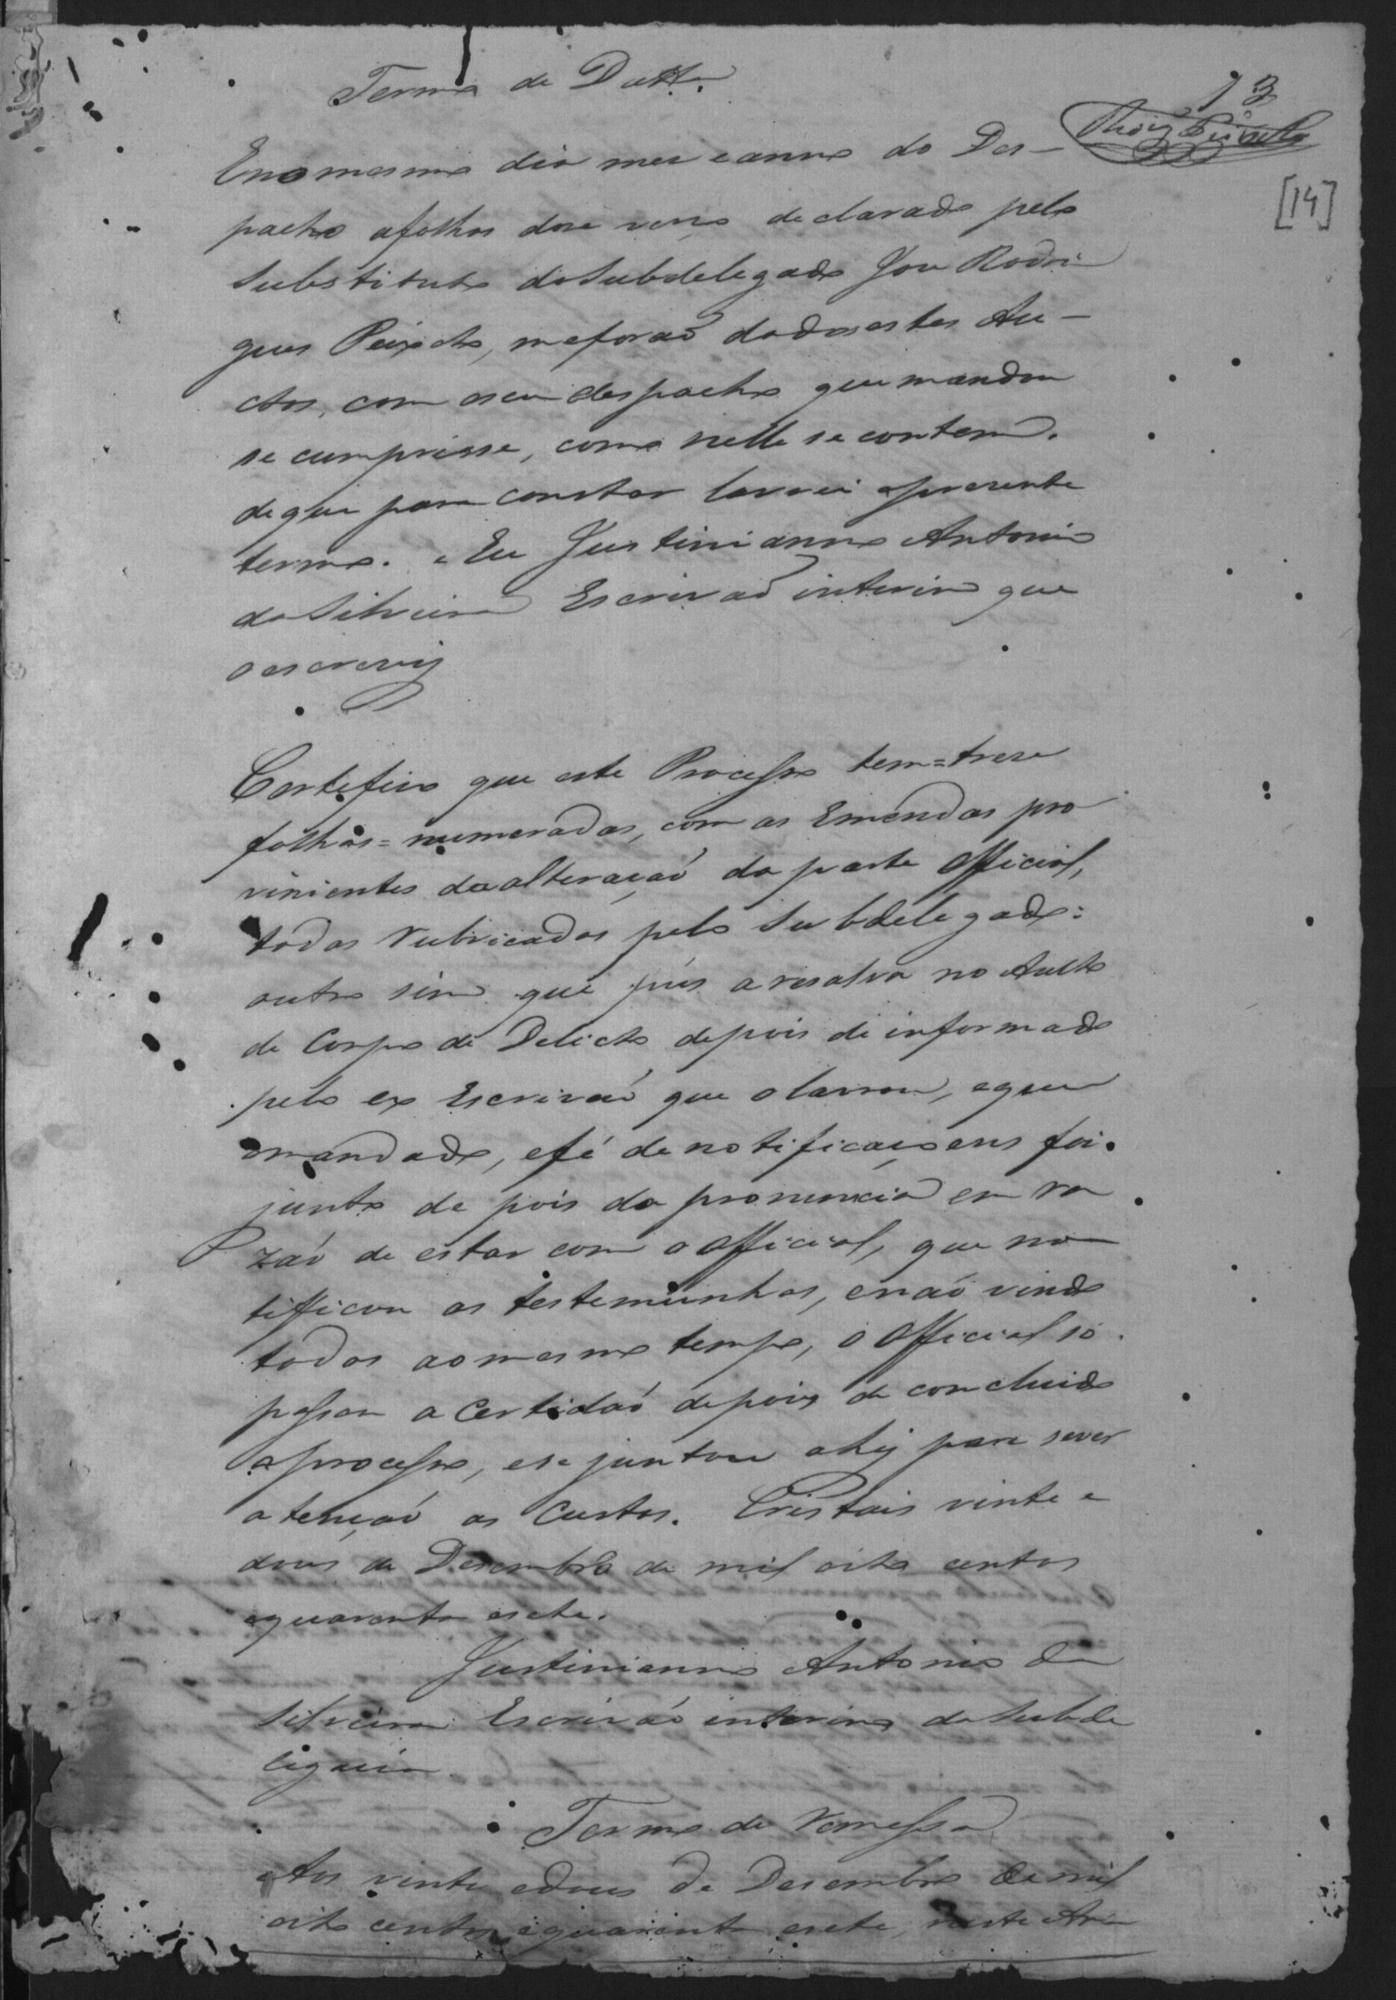 Termo de Datta.
13
[14]
Eno mesmo dia mes e anno do Des-
pacho afolhas dose verso declarado pelo
Substituto do Subdelegado Jose Rodri
gues Peixoto, me forão dados estes Au-
ctos, com o seu despacho que mandou
se cumprisse, como nelle se contem.
de que para constar lavrei opresente
termo. Eu Justinianno Antonio
da Silveira Escrivaõ interino que
o escrevij
Certefico que este Processo tem=trese
folhas=numeradas, com as Emendas pro
vinientes da alteraçaõ da parte Official,
todas rubricadas pelo Subdelegado:
outro sim que pus a resalva no Aucto
de Corpo de Delicto depois de informado
pelo ex Escrivaõ que o lavrou, e que o
mandado, e fé de notificaçoens foi
junto de pois da pronuncia em ra
zaõ de estar com o Official, que no
tificou as testemunhas, e naõ vindo
todas ao mesmo tempo, o Official só
passou a Certidaõ depois de concluido
o processo, e se juntou ahij para se ver
a tençaõ as Custas. Cristais vinte e
dous de Desembro de mil oito centos
e quarenta e sete.
Justinianno Antonio da
Silveira Escrivaõ interino da Subde
legacia
Termo de Remessa
Aos vinte e dous de Desembro de mil
oito centos e quarenta e sete, neste Ar